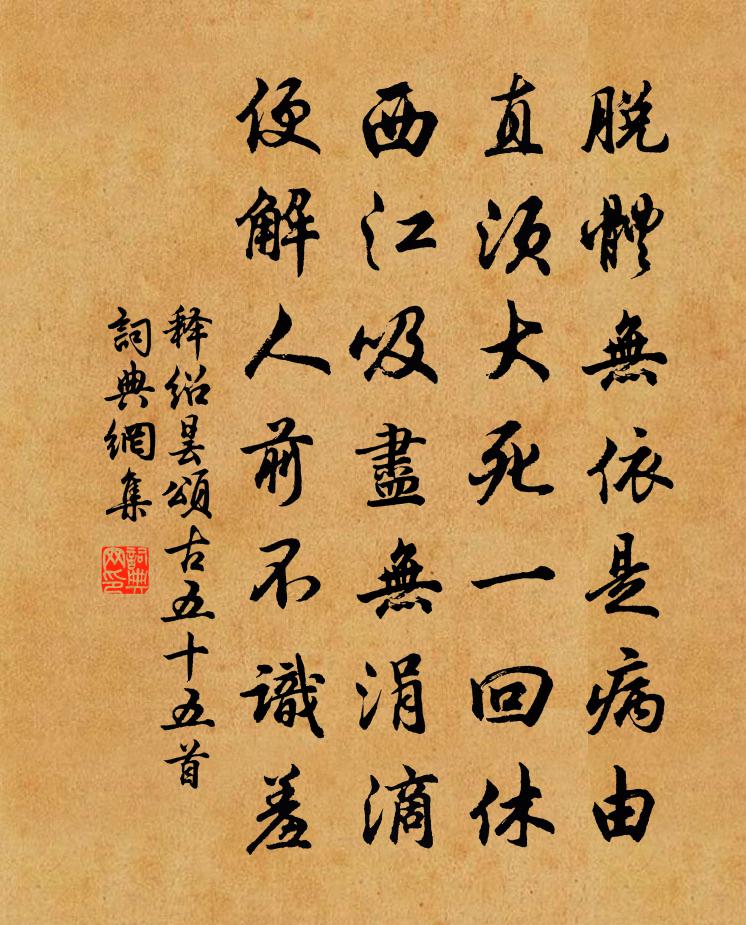 脫體無依是病由
直須大死一回休
西江吸盡無涓滴
便解人前不識羞
释绍昙頌古五十五首
詞典網集
詞典网印